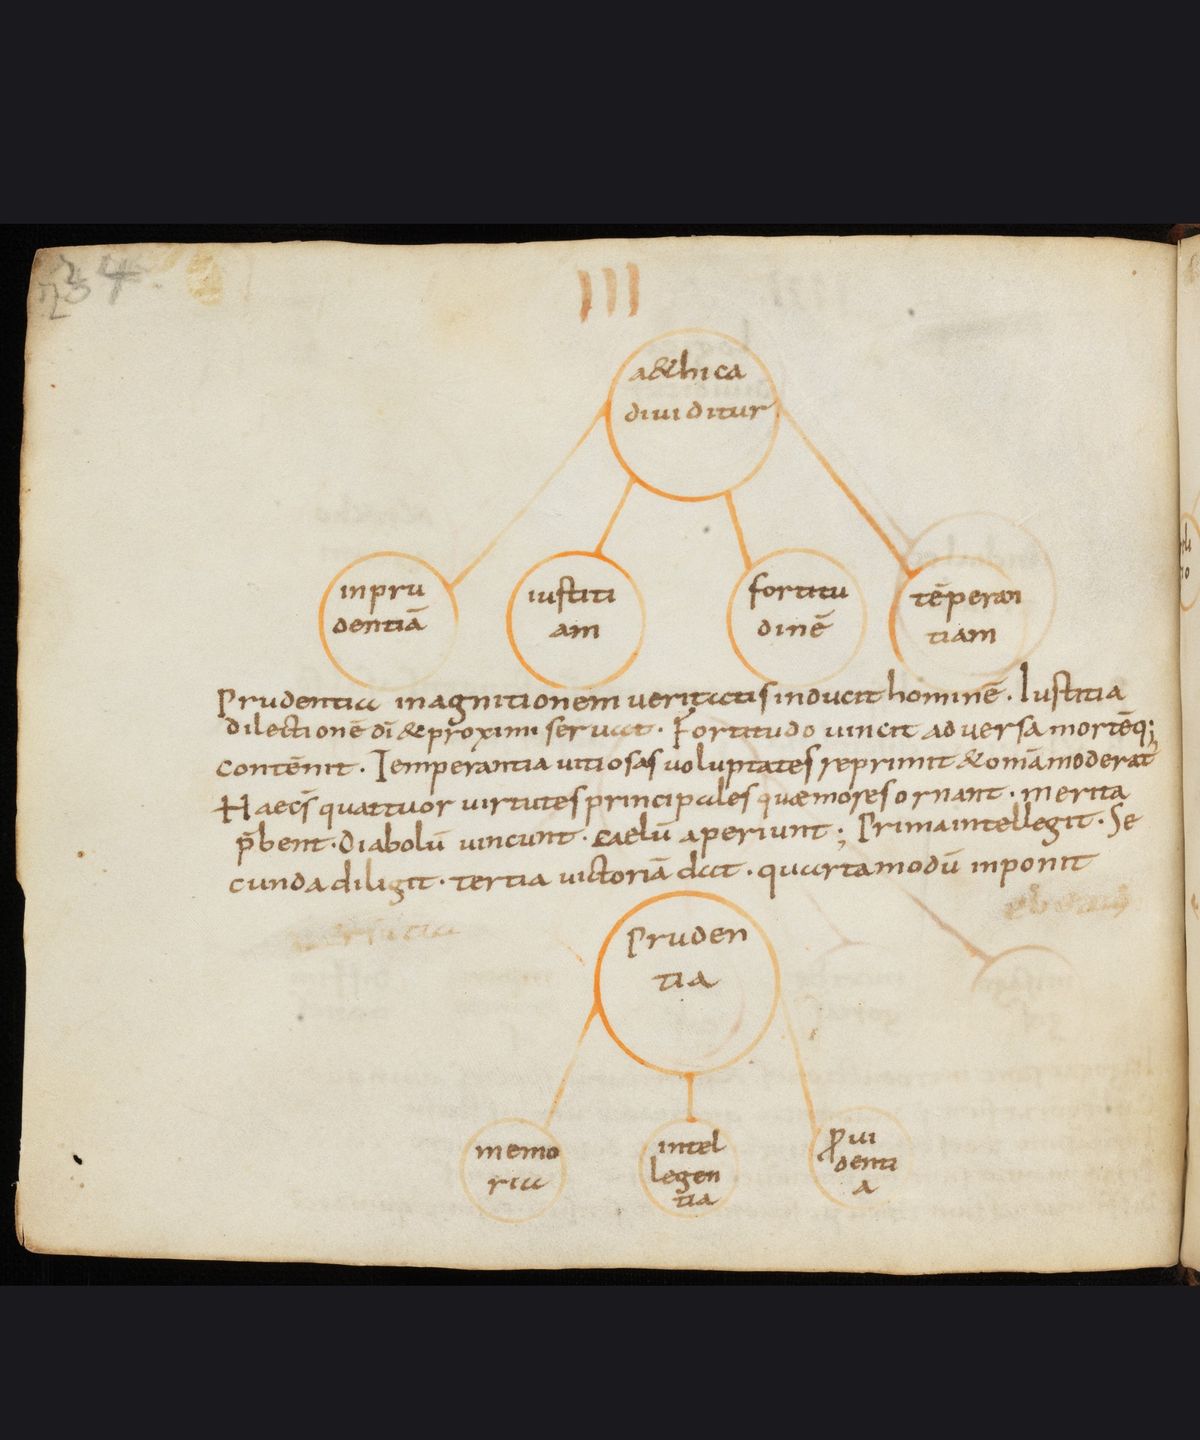 234
III
a&hica
diuiditur
inpru
dentiā
iustiti
am
fortitu
dinē
tēperan
tiam
Prudentia inagnitionem ueritatis inducit hominē. Iustitia
dilectionē dī & proximi seruat. Fortitudo uincit aduersa mortēq;
contēnit. Temperantia uitiosas uoluptates reprimit & omīa moderat
Haec s̄ quattuor uirtutes principales quæ mores ornant. merita
p̄bent. Diabolū uincunt. caelū aperiunt; Prima intellegit. Se
cunda diligit. tertia uictoriā dat. quarta modū inponit
Pruden
tia
memo
ria
intel
legen
tia
ꝓui
denti
a